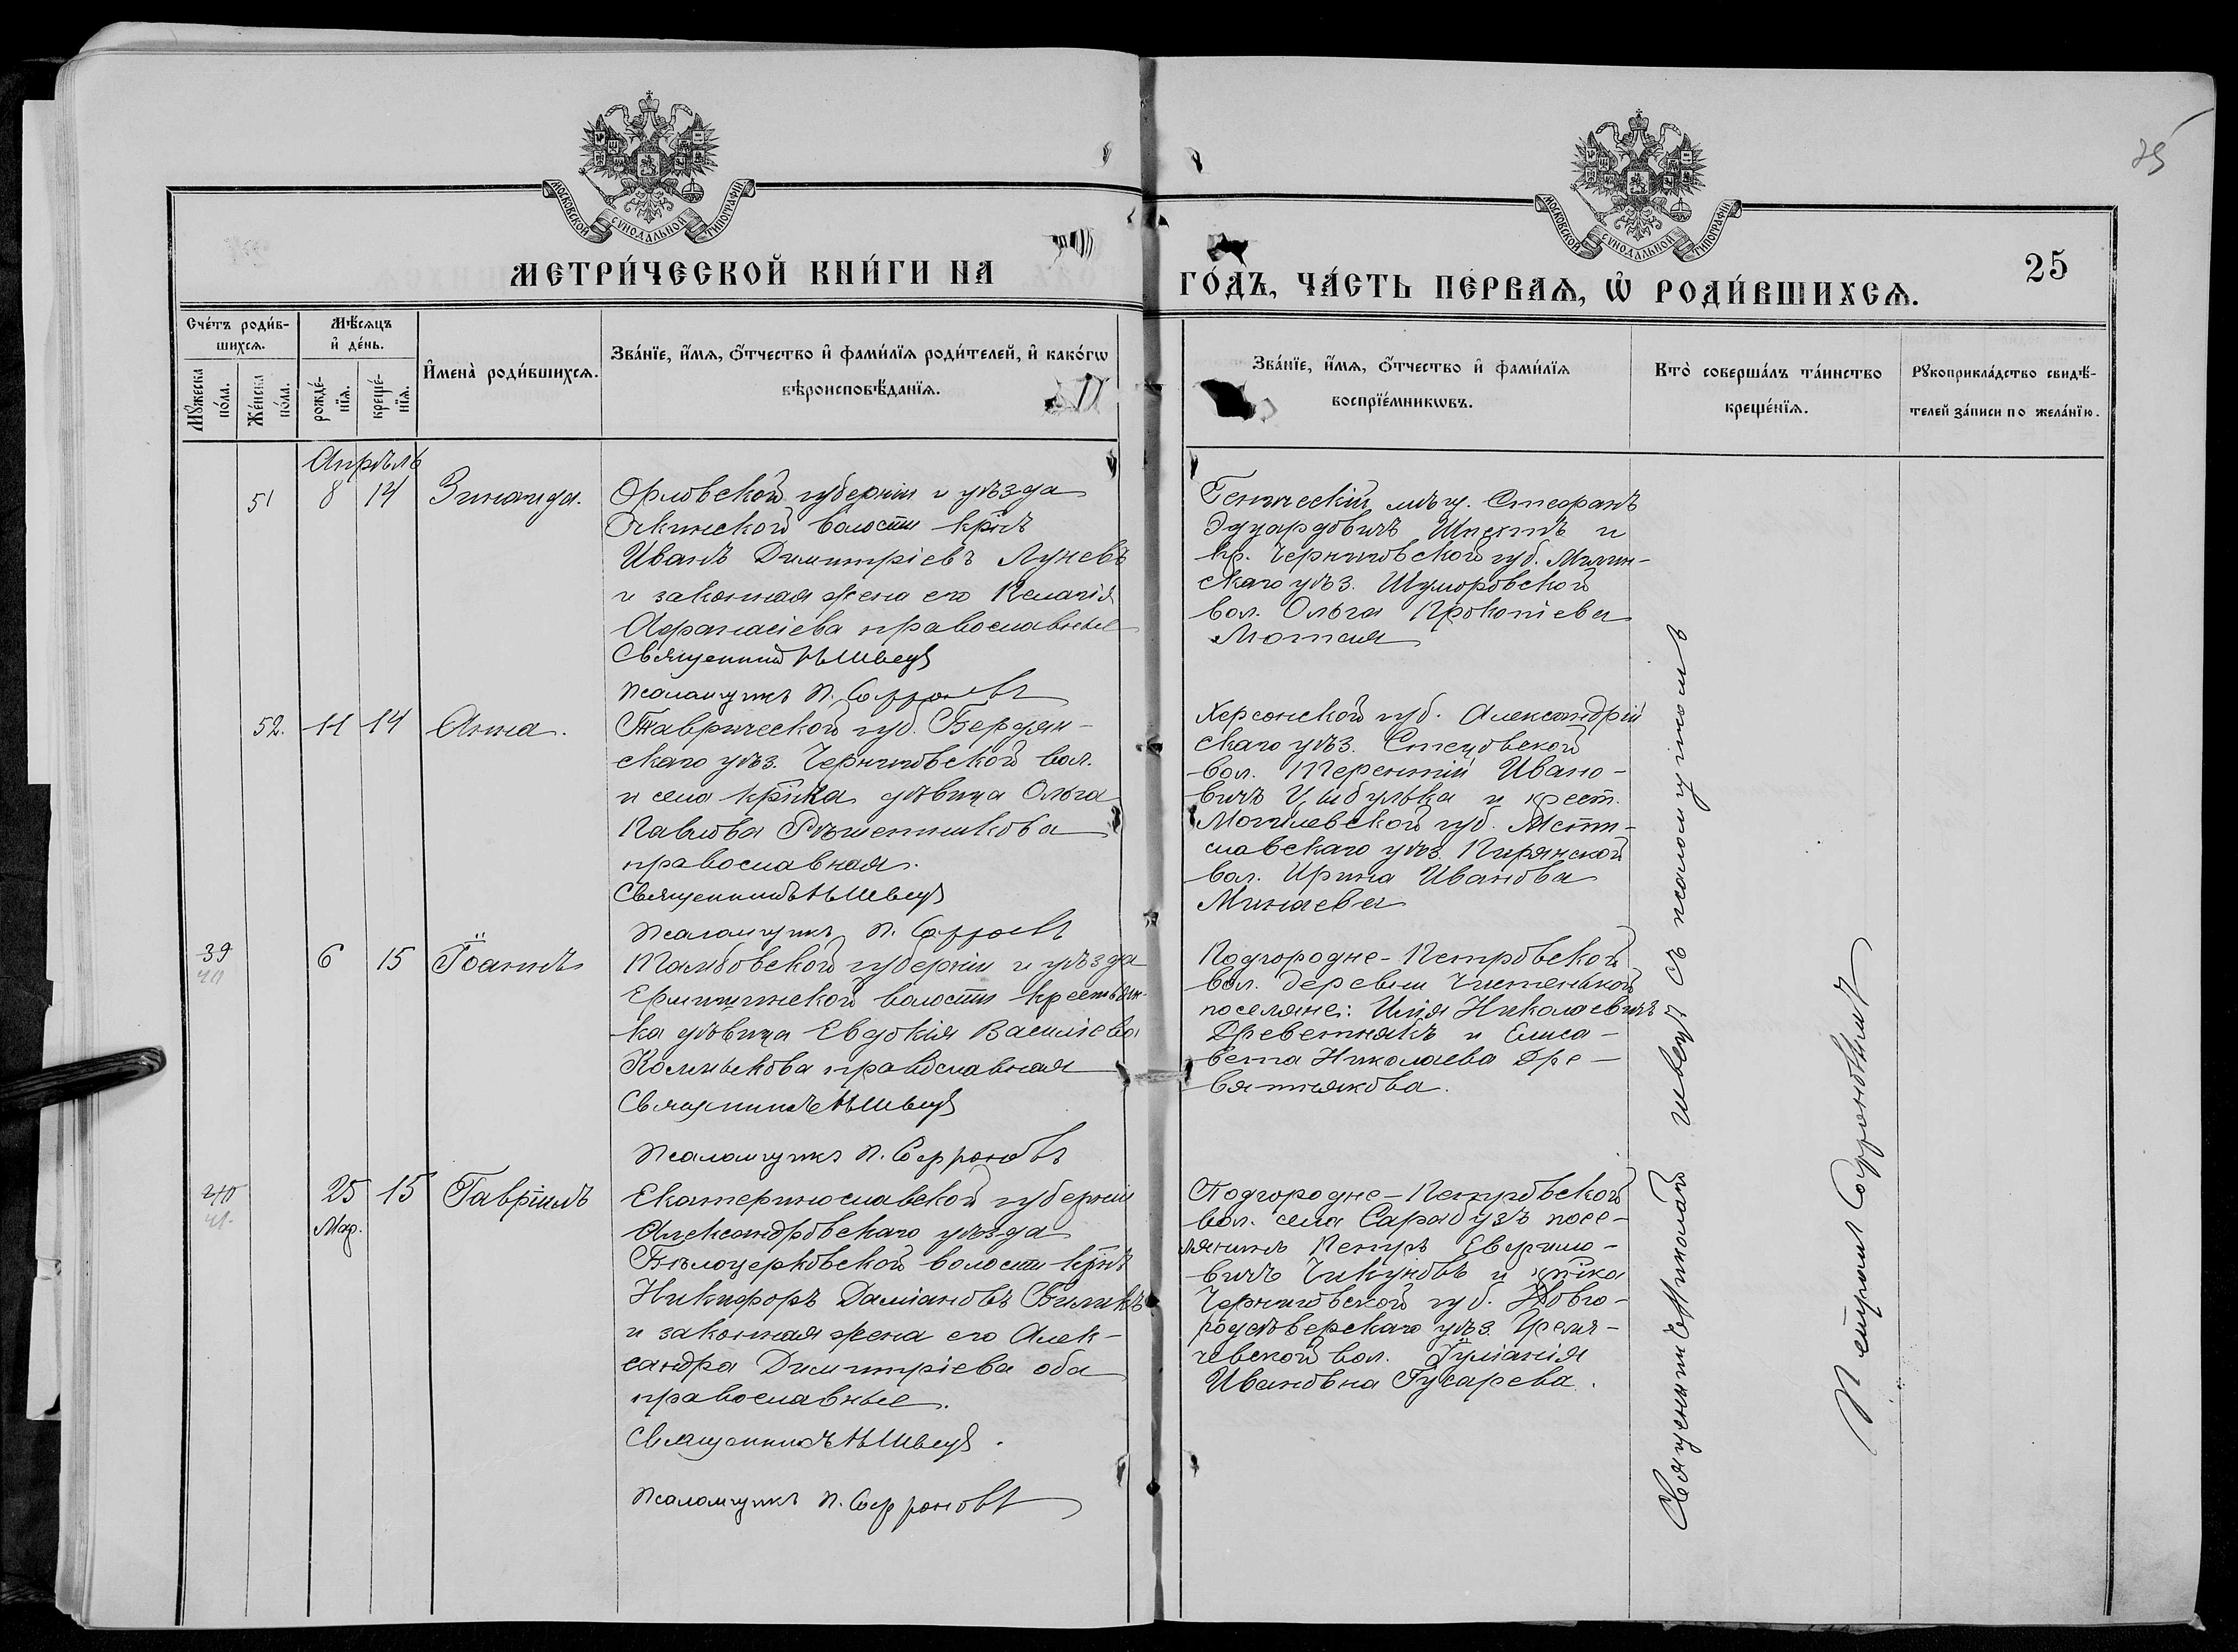 МОСКОВСКОЙ СѴНОДАЛЬНОЙ ТИПОГРАФІИ
МОСКОВСКОЙ СѴНОДАЛЬНОЙ ТИПОГРАФІИ
25
МЕТРИ́ЧЕСКОЙ КНИ́ГИ НА
ГО́ДЪ, ЧА́СТЬ ПЕ́РВАѦ, Ѡ РОДИ́ВШИХСѦ.
25
Сче́тъ роди́в-
шихсѧ.
Мѣ́сѧцъ
и҆ де́нь.
Мꙋ́жеска
по́ла.
Же́нска
по́ла.
рожде́-
нїѧ.
креще́-
нїѧ.
И҆мена̀ роди́вшихсѧ.
Зва́нїе, и҆́мѧ, ѻ҆́тчество и҆ фами́лїѧ роди́телей, и҆ како́гѡ
вѣроисповѣ́данїѧ.
Зва́нїе, и҆́мѧ, ѻ҆́тчество и҆ фами́лїѧ
воспрїе́мникѡвъ.
Кто̀ соверша́лъ та́инство
креще́нїѧ.
Рꙋкоприкла́дство свидѣ́-
телей за́писи по жела́нїю.
Апрѣль
51 8 14 Зинаида.
Орловской губерніи и уѣзда
волости кр‑нъ
Иванъ Димитріевъ Луневъ
и законная жена его Пелагія
Афанасіева православные
Священникъ Н Швецъ
Псаломщикъ П. Софроновъ
Геническій мѣщ. Стефанъ
Эдуардовичъ и
кр. Черниговской губ. Мглин-
скаго уѣз. Шуморовской
вол. Ольга Прокопіева
52. 11 14 Анна.
Таврической губ. Бердян-
скаго уѣз. Черниговской вол.
и села кр‑нка дѣвица Ольга
Павлова Рѣшетникова
православная.
Священникъ Н Швецъ
Псаломщикъ П. Софроновъ
Херсонской губ. Александрій
скаго уѣз. Стецовской
вол. Терентій Ивано-
вичъ Цыбулька и крест.
Могилевской губ. Мсти-
славскаго уѣз. Пирянской
вол. Ирина Иванова
Минаева
39 6 15 Іоаннъ
40
Тамбовской губерніи и уѣзда
волости крестьян-
ка дѣвица Евдокія Василіева
православная
Священникъ Н Швецъ
Псаломщикъ П. Софроновъ
Подгородне-Петровской
вол. деревни Чистенькой
поселяне: Илія Николаевичъ
Древетнякъ и Елиса-
вета Николаева Дре-
вятнякова.
40 25 15 Гавріилъ
41. Мар.
Екатеринославской губерніи
Александровскаго уѣзда
Бѣлоцерковской волости кр‑нъ
Никифоръ Даміановъ Биликъ
и законная жена его Алек-
сандра Димитріева оба
православные.
Священникъ Н Швецъ.
Псаломщикъ П. Софроновъ
Подгородне-Петровской
вол. села Сарабузъ посе-
лянинъ Петръ Евфимо-
вичъ Чикуновъ и кр‑нка
Черниговской губ. Новго-
родсѣверскаго уѣз.
вол. Іуліанія
Ивановна Гусарева.
Священникъ Николай Швецъ съ псаломщикомъ
Петромъ Софроновымъ